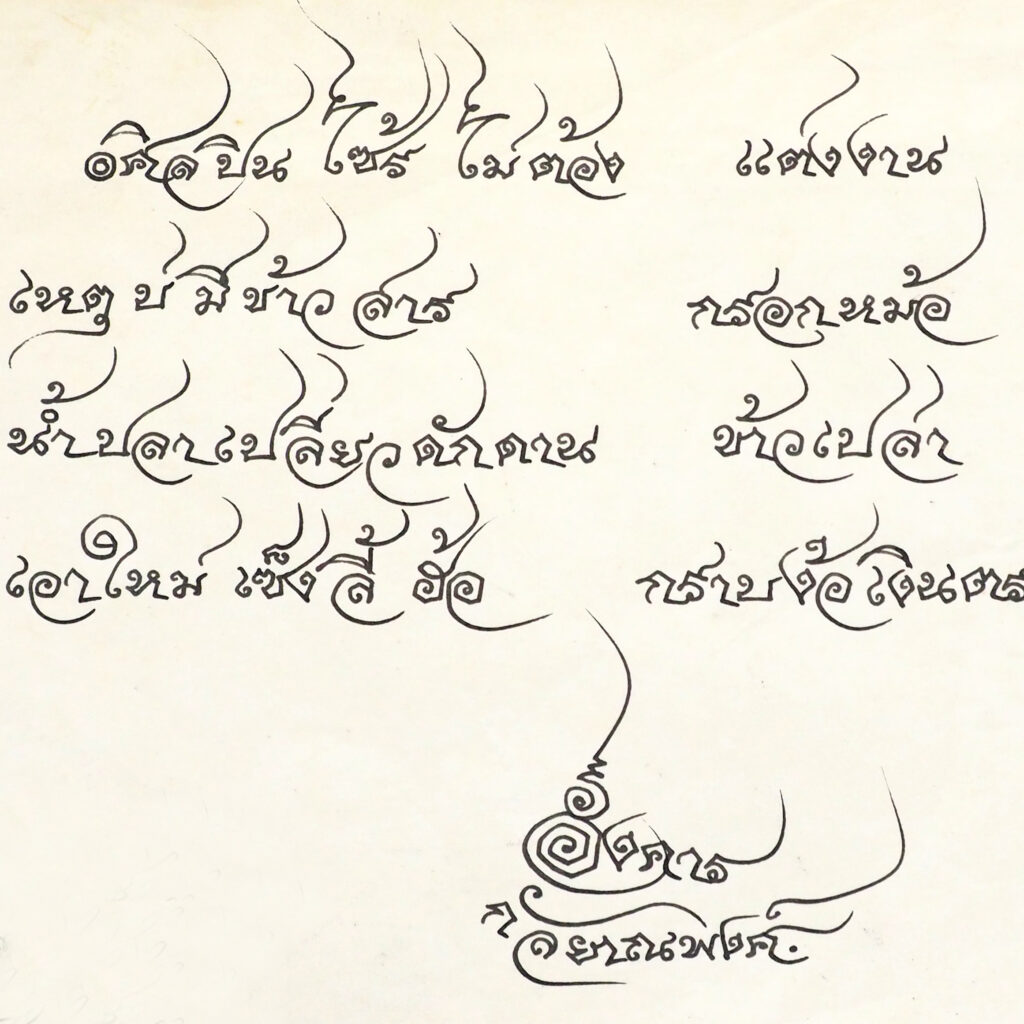 ๏ศิลปิน ไซร้ ไม่ต้อง แต่งงาน
เหตุ บ่ มี ข้าว สาร กรอกหม้อ
น้ำปลาเปลี่ยวดักดาน ข้าวเปล่า
เอาใหม่ เซ็งลี้ ฮ้อ กราบง้อเงินตร
อังคาร
กัลยาณพงศ์.